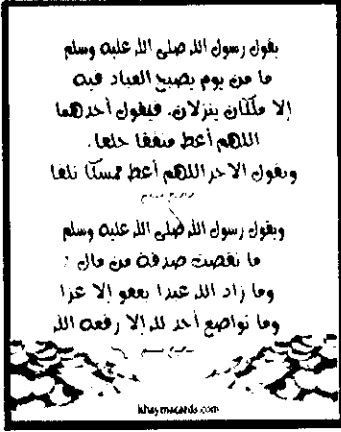 يقول رسول الله صلى الله عليه وسلم
ما من يوم يصبح العباد فيه
إلا ملكان ينزلان. فيقول أحدهما
اللهم أعط منفقا خلفا.
ويقول الآخر اللهم أعط ممسكا تلفا
ويقول رسول الله صلى الله عليه وسلم
ما نقصت صدقة من مال :
وما زاد الله عبدا بعفو إلا عزا
وما تواضع أحد لله إلا رفعه الله
khaymacards.com